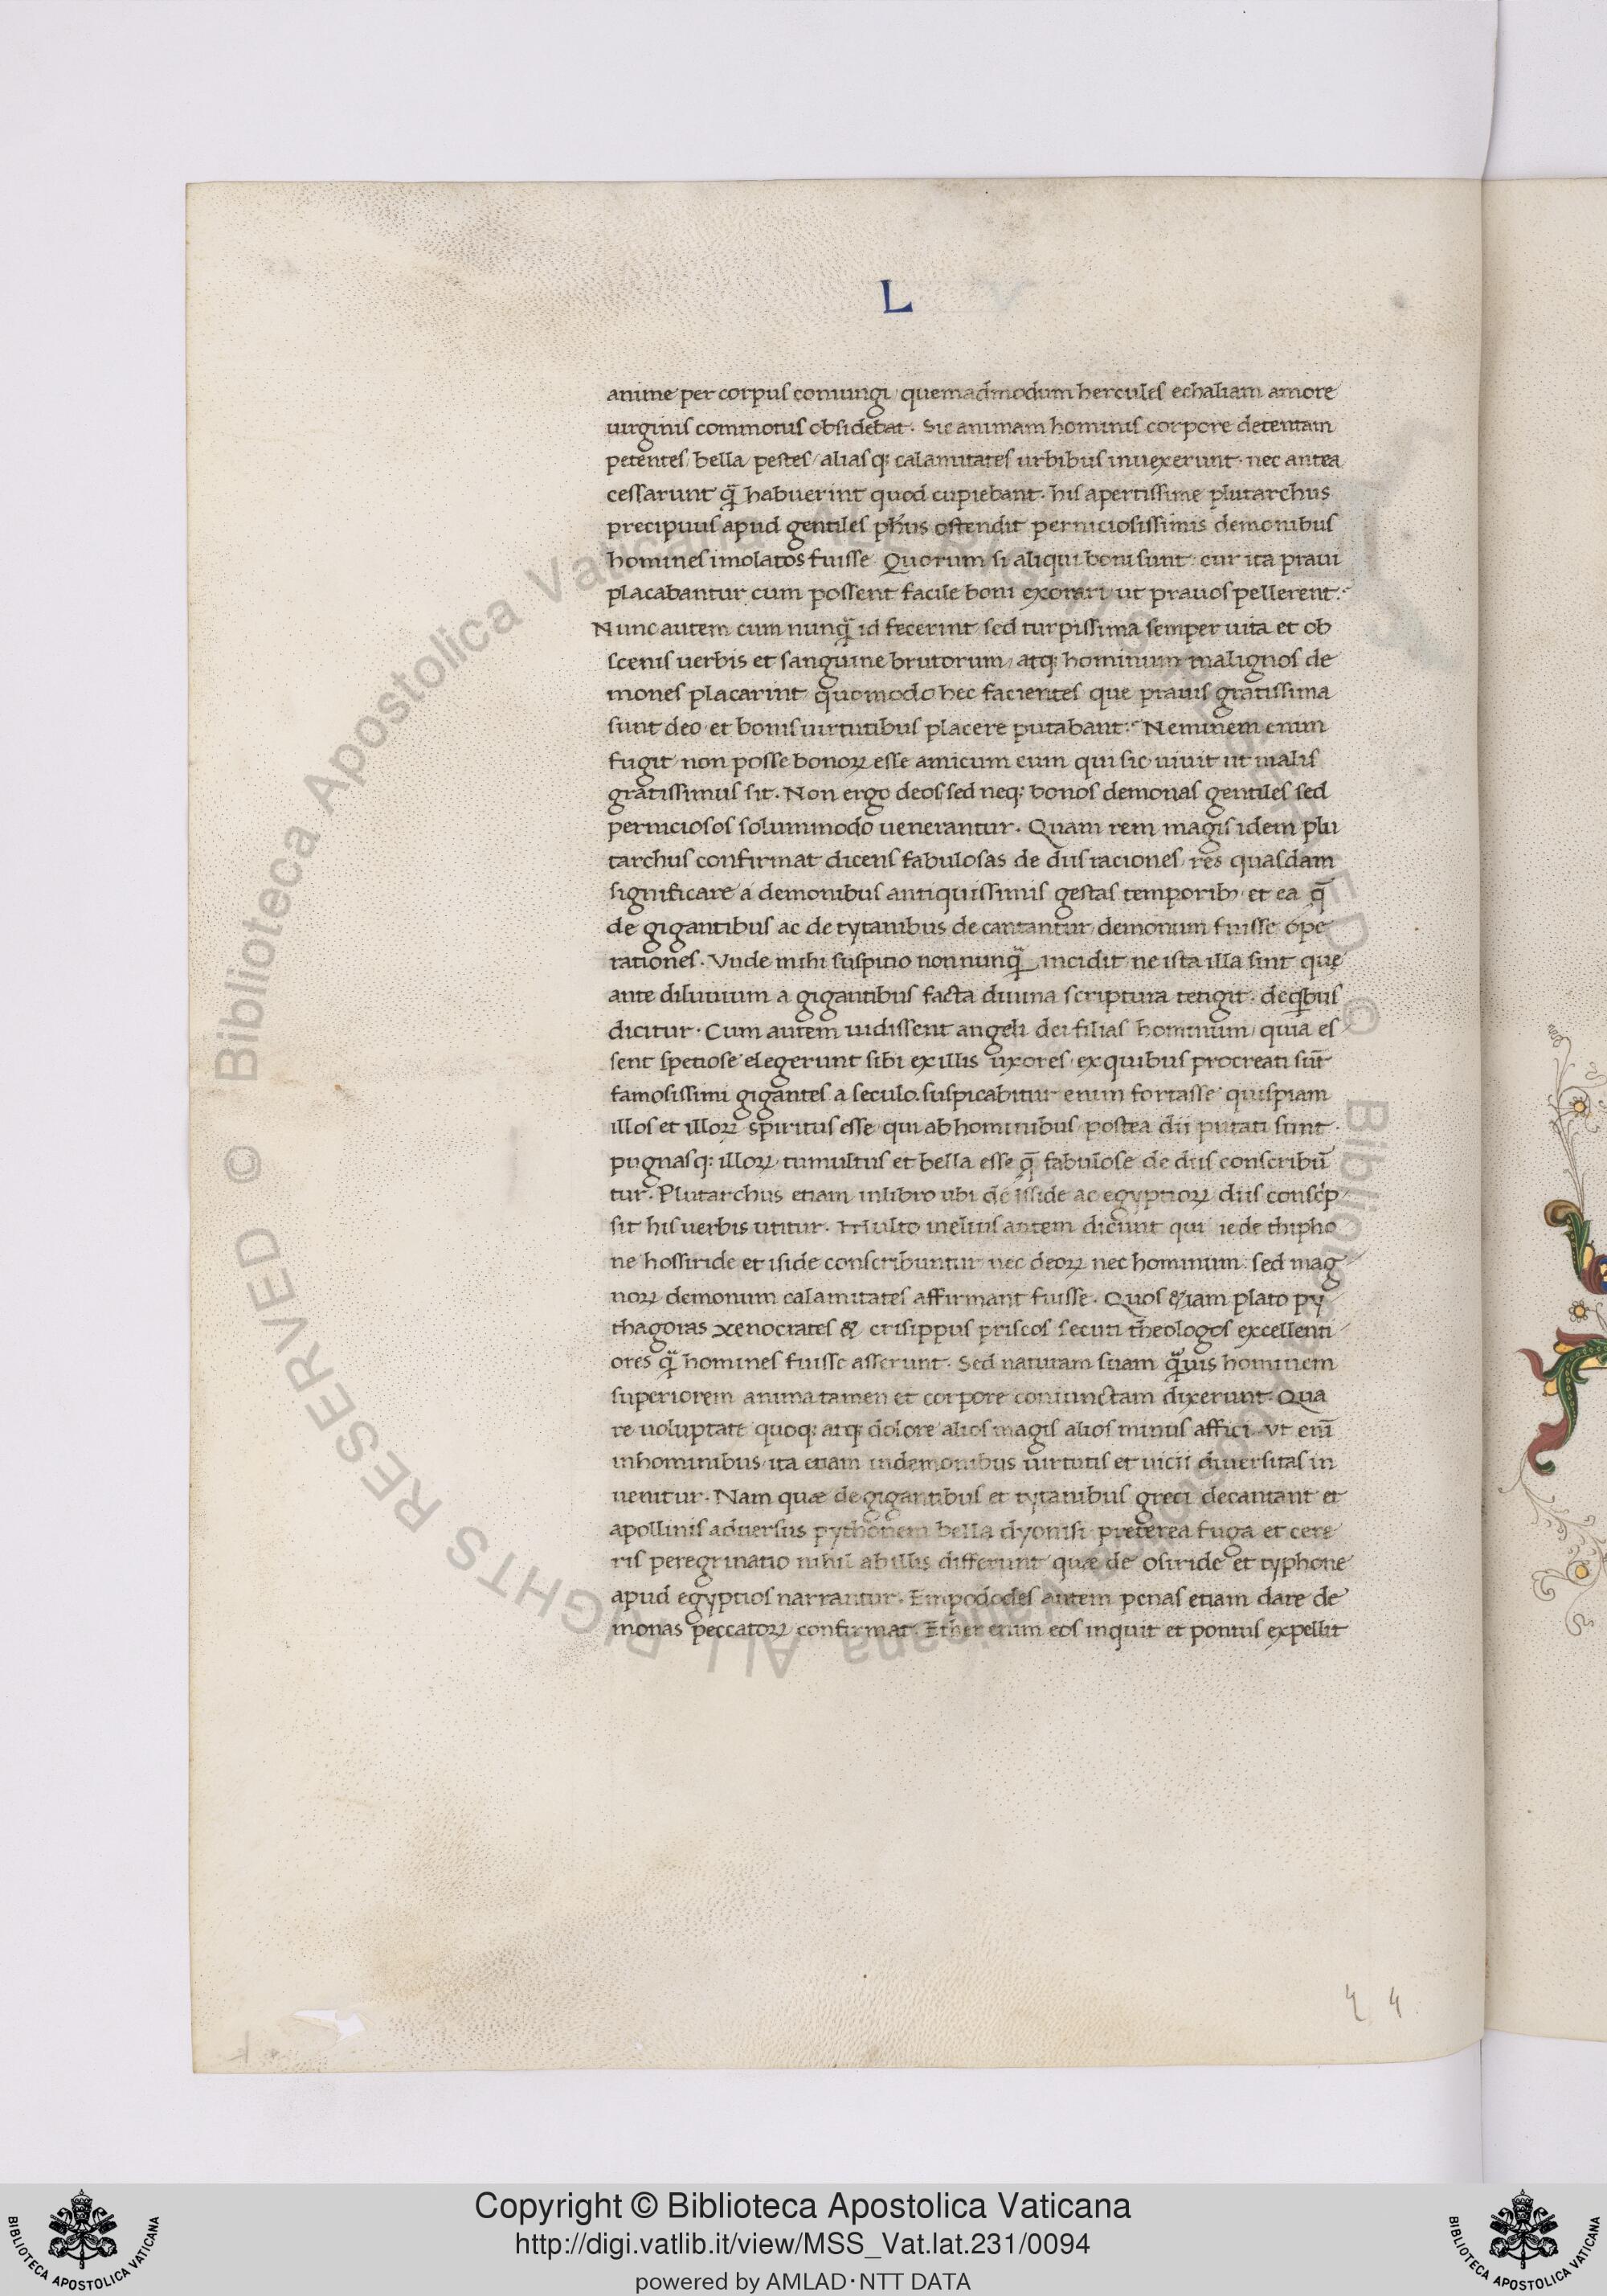 L
anime per corpus coniungi quemadmodum hercules echaliam amore
uirginis commotus obsidebat. Sic animam hominis corpore detentam
petentes bella pestes alias q; calamitates urbibus inuexerunt. nec antea
cessarunt q̃ habuerint quod cupiebant. his apertissime plutarchus
precipuus apud gentiles ph̃us ostendit perniciosissimis demonibus
homines imolatos fuisse. Quorum si aliqui boni sunt cur ita praui
placabantur cum possent facile boni exorari ut prauos pellerent.
Nunc autem cum nunq̃ id fecerint sed turpissima semper uita et ob
scenis uerbis et sanguine brutorum atq; hominum malignos de
mones placarint quomodo hec facientes que prauis gratissima
sunt deo et bonis uirtutibus placere putabant. Neminem enim
fugit non posse bonoꝝ esse amicum eum qui sic uiuit ut malis
gratissimus sit. Non ergo deos sed neq; bonos demonas gentiles sed
perniciosos solummodo uenerantur. Quam rem magis idem plu
tarchus confirmat dicens fabulosas de diis raciones res quasdam
significare a demonibus antiquissimis gestas temporib; et ea q̃
de gigantibus ac de tytanibus decantantur demonum fuisse ope
rationes. Vnde mihi suspitio nonnunq̃ incidit ne ista illa sint que
ante diluuium a gigantibus facta diuina scriptura tetigit. de qͥbus
dicitur. Cum autem uidissent angeli dei filias hominum quia es
sent spetiose elegerunt sibi ex illis uxores ex quibus procreati sūt
famosissimi gigantes a seculo. suspicabitur enim fortasse quispiam
illos et illoꝝ spiritus esse qui ab hominibus postea dii putati sunt.
pugnasq; illoꝝ tumultus et bella esse q̃ fabulose de diis conscribū
tur. Plutarchus etiam in libro ubi de iside ac egyptioꝝ diis conscͥp
sit his uerbis utitur. Multo melius autem dicunt qui ie de thipho
ne hossiride et iside conscribuntur nec deoꝝ nec hominum sed mag
noꝝ demonum calamitates affirmant fuisse. Quos &iam plato py
thagoras xenocrates & crisippus priscos secuti theologos excellenti
ores q̃ homines fuisse asserunt. Sed naturam suam q̃uis hominem
superiorem anima tamen et corpore coniunctam dixerunt. Qua
re uoluptate quoq; atq; dolore alios magis alios minus affici. vt enĩ
in hominibus ita etiam in demonibus uirtutis et uicii diuersitas in
uenitur. Nam quæ de gigantibus et tytanibus greci decantant et
apollinis aduersus pythonem bella dyonisi preterea fuga et cere
ris peregrinatio nihil ab illis differunt quæ de osiride et typhone
apud egyptios narrantur. Empodocles autem penas etiam dare de
monas peccatoꝝ confirmat. Ether enim eos inquit et pontus expellit
4 4
© Biblioteca Apostolica Vaticana ALL RIGHTS RESERVED
© Biblioteca Apostolica Vaticana ALL RIGHTS RESERVED
Copyright © Biblioteca Apostolica Vaticana
http://digi.vatlib.it/view/MSS_Vat.lat.231/0094
powered by AMLAD·NTT DATA
BIBLIOTECA APOSTOLICA VATICANA
BIBLIOTECA APOSTOLICA VATICANA